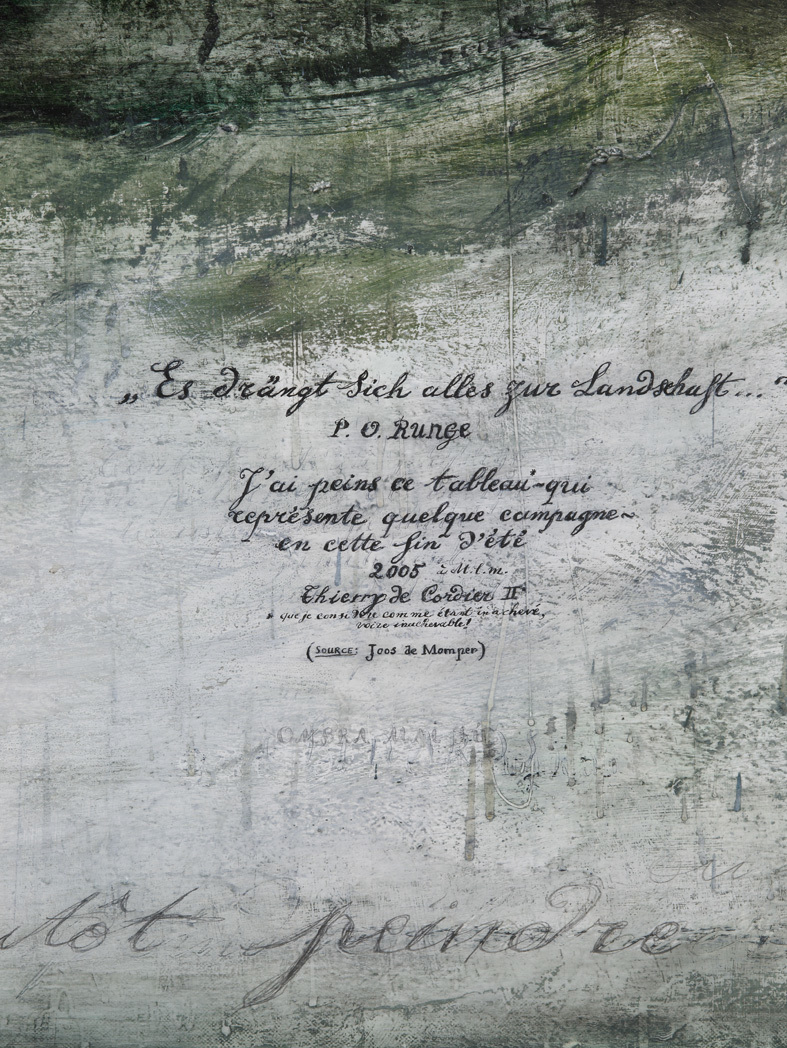 „Es drängt sich alles zur Landschaft..."
P. O. Runge
J'ai peins ce tableau-qui
représente quelque campagne~
en cette fin d'été
2005 à M.t.m.
Thierry de Cordier IF
* que je considère comme étant inachevé,
voire inachevable!
(SOURCE: Joos de Momper)
OMBRA MAI
peindre